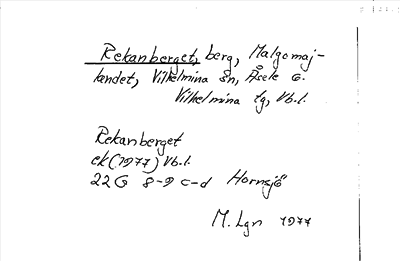 Rekanberget, berg, Malgomaj-
landet, Vilhelmina sn, Åsele
Vilhelmina tg, Vb.l.
Rekanberget
ek (1977) Vb.l.
22G 8-9 c-d Hornsjö
M. Lgn 1977